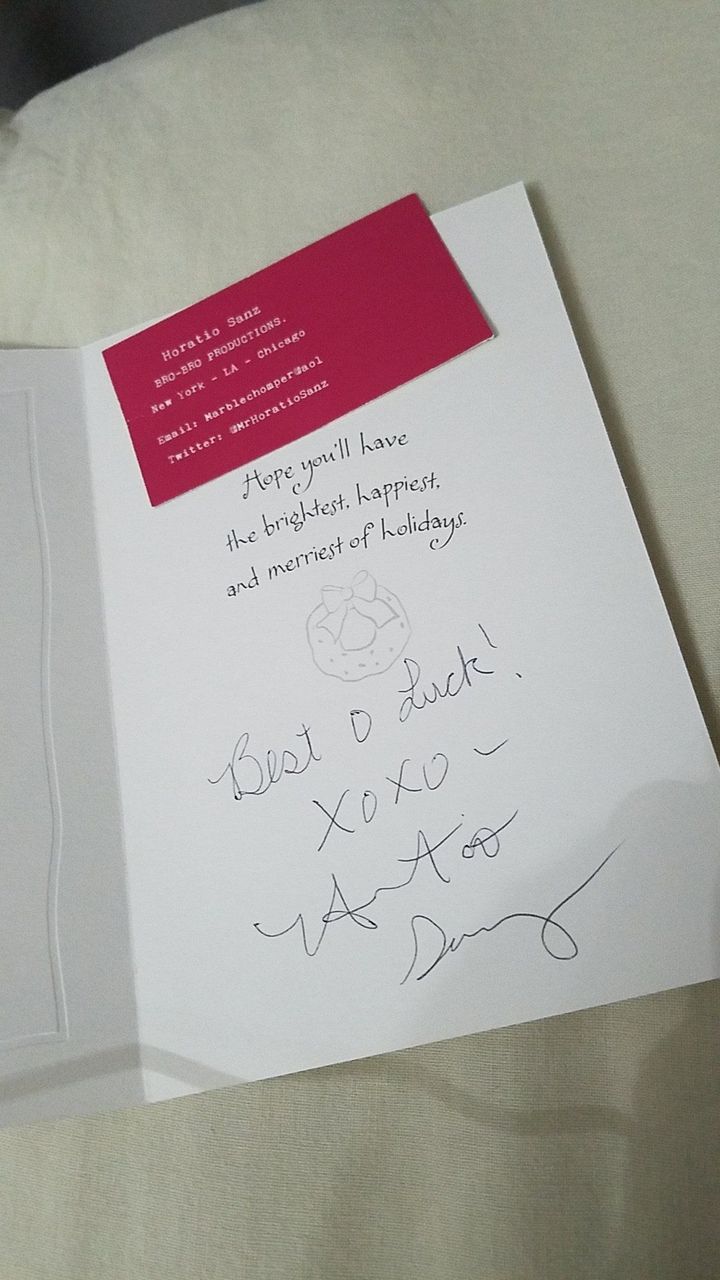 Horatio Sanz
BRO-BRO PRODUCTIONS.
New York - LA - Chicago
Email: Marblechomper@aol
Twitter: @MrHoratioSanz
Hope you'll have
the brightest, happiest,
and merriest of holidays.
Best O Luck!
XOXO ~
Sanz